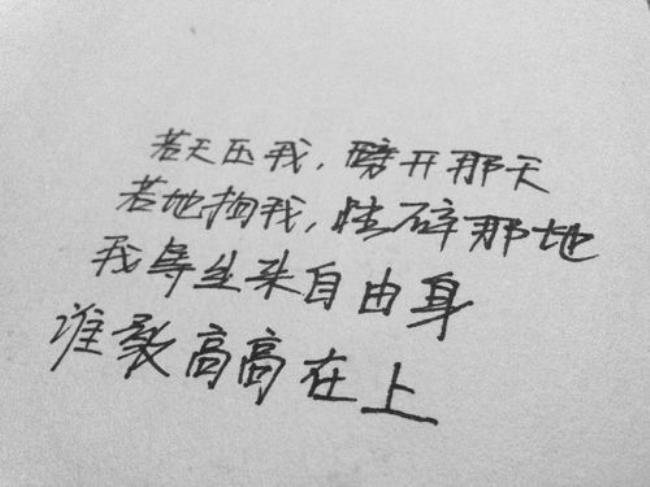 若天压我，劈开那天
若地拘我，踏碎那地
我等生来自由身
谁敢高高在上